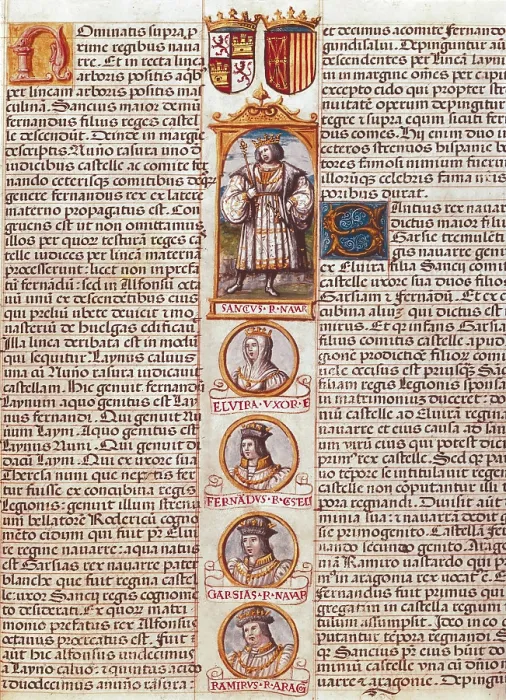 Nominatis supra p
rime regibus naua
rre. Et in recta linea
arboris positis aqb
per lineam arboris positis ma
culina. Sancius maior genuit
fernandus filius reges castel
le descendūt. Deinde in margie
descriptis. Nuño rasura uno d
iudicibus castelle ac comite fer
nando ceterisque comitibus
genere fernandus rex ex latere
materno propagatus est. Con
gruens est ut non omittamus
illos per quos testura reges ca
telle iudices per lineā materna
processerunt: licet non in prefa
tū fernādū: sed in Alfonsū octa
uū unū ex descendētibus eius
qui preliū ubete deuicit & mo
nasteriū de huelgas edificauit
illa linea deribata est in modū
qui sequitur. Laynus caluus
una cū Nuño rasura iudicauit
castellam. Hic genuit fernandū
Laynum aquo genitus est Lay
nus fernandi. Qui genuit Nu
num Layni. Aquo genitus est
Laynus Nuni. Qui genuit di
dacū Layni. Qui ex uxore sua
theresa nuni que neptis fer
tur fuisse ex concubina regis
Legionis: genuit illum strenu
um bellatorē Rodericū cogno
mēto cidum qui fuit pr̄ Elui
re regine nauarre: aqua natus
est Garsias rex nauarre pater
blanche que fuit regina castel
le: uxor Sancij regis cognomē
to desiderati. Ex quorum matri
monio prefatus rex Alfonsus
octauus procreatus est. Fuit
aūt hic alfonsus undecimus
a Layno caluo: & quintus acido
& duodecimus anuño rasura
SANCVS · R · NAVAR
ELVIRA · VXOR · E
FERNĀDVS · R · CSTELI
GARSIAS · R · NAVAR
RAMIRVS · R · ARAG
et decimus acomite fernando
gundisalui. Depinguntur aūt
descendentes per Lineā layni
in margine om̄es per caput
excepto cido qui propter stre
nuitatē operum depingitur
tegre & supra equū sicuti fer
dus comes. Hij enim duo in
ceteros strenuos hispanie be
tores famosi nimium fuerūt
illorūque celebris fama in is
poribus durat.
Santius rex nauar
dictus maior filius
Garsie tremuleti
gis nauarre genu
ex Eluira filia Sancij comi
castelle uxore sua duos filios
Garsiam & fernādū. Et ex c
cubina aliū: qui dictus est
mirus. Et que infans Garsia
filius comitis castelle apud
gionē prodictiōe filiorū comi
uele occisus est priusque San
filiam regis Legionis sponsa
in matrimoniuz duceret: do
niū castelle ad Eluirā reginā
nauarre et eius causa ad san
um virū eius qui potest dic
prim rex castelle. Sed que pa
uo tēpore se intitulauit regem
castelle non cōputantur illi
pora regnandi. Diuisit aūt
minia sua: & nauarrā dedit
sie primogenito. Castellā fer
nando secundo genito. Aragon
nia Ramiro uastardo qui pr
in aragonia rex uocat est.
fernandus fuit primus qui
gregatim in castella regium
tulum assumpsit. Ideo in eo
putantur tēpora regnandi. S
Sancius pr̄ eius huit dō
minium castelle vna cū dn̄io na
uarre & aragonie. Depingū